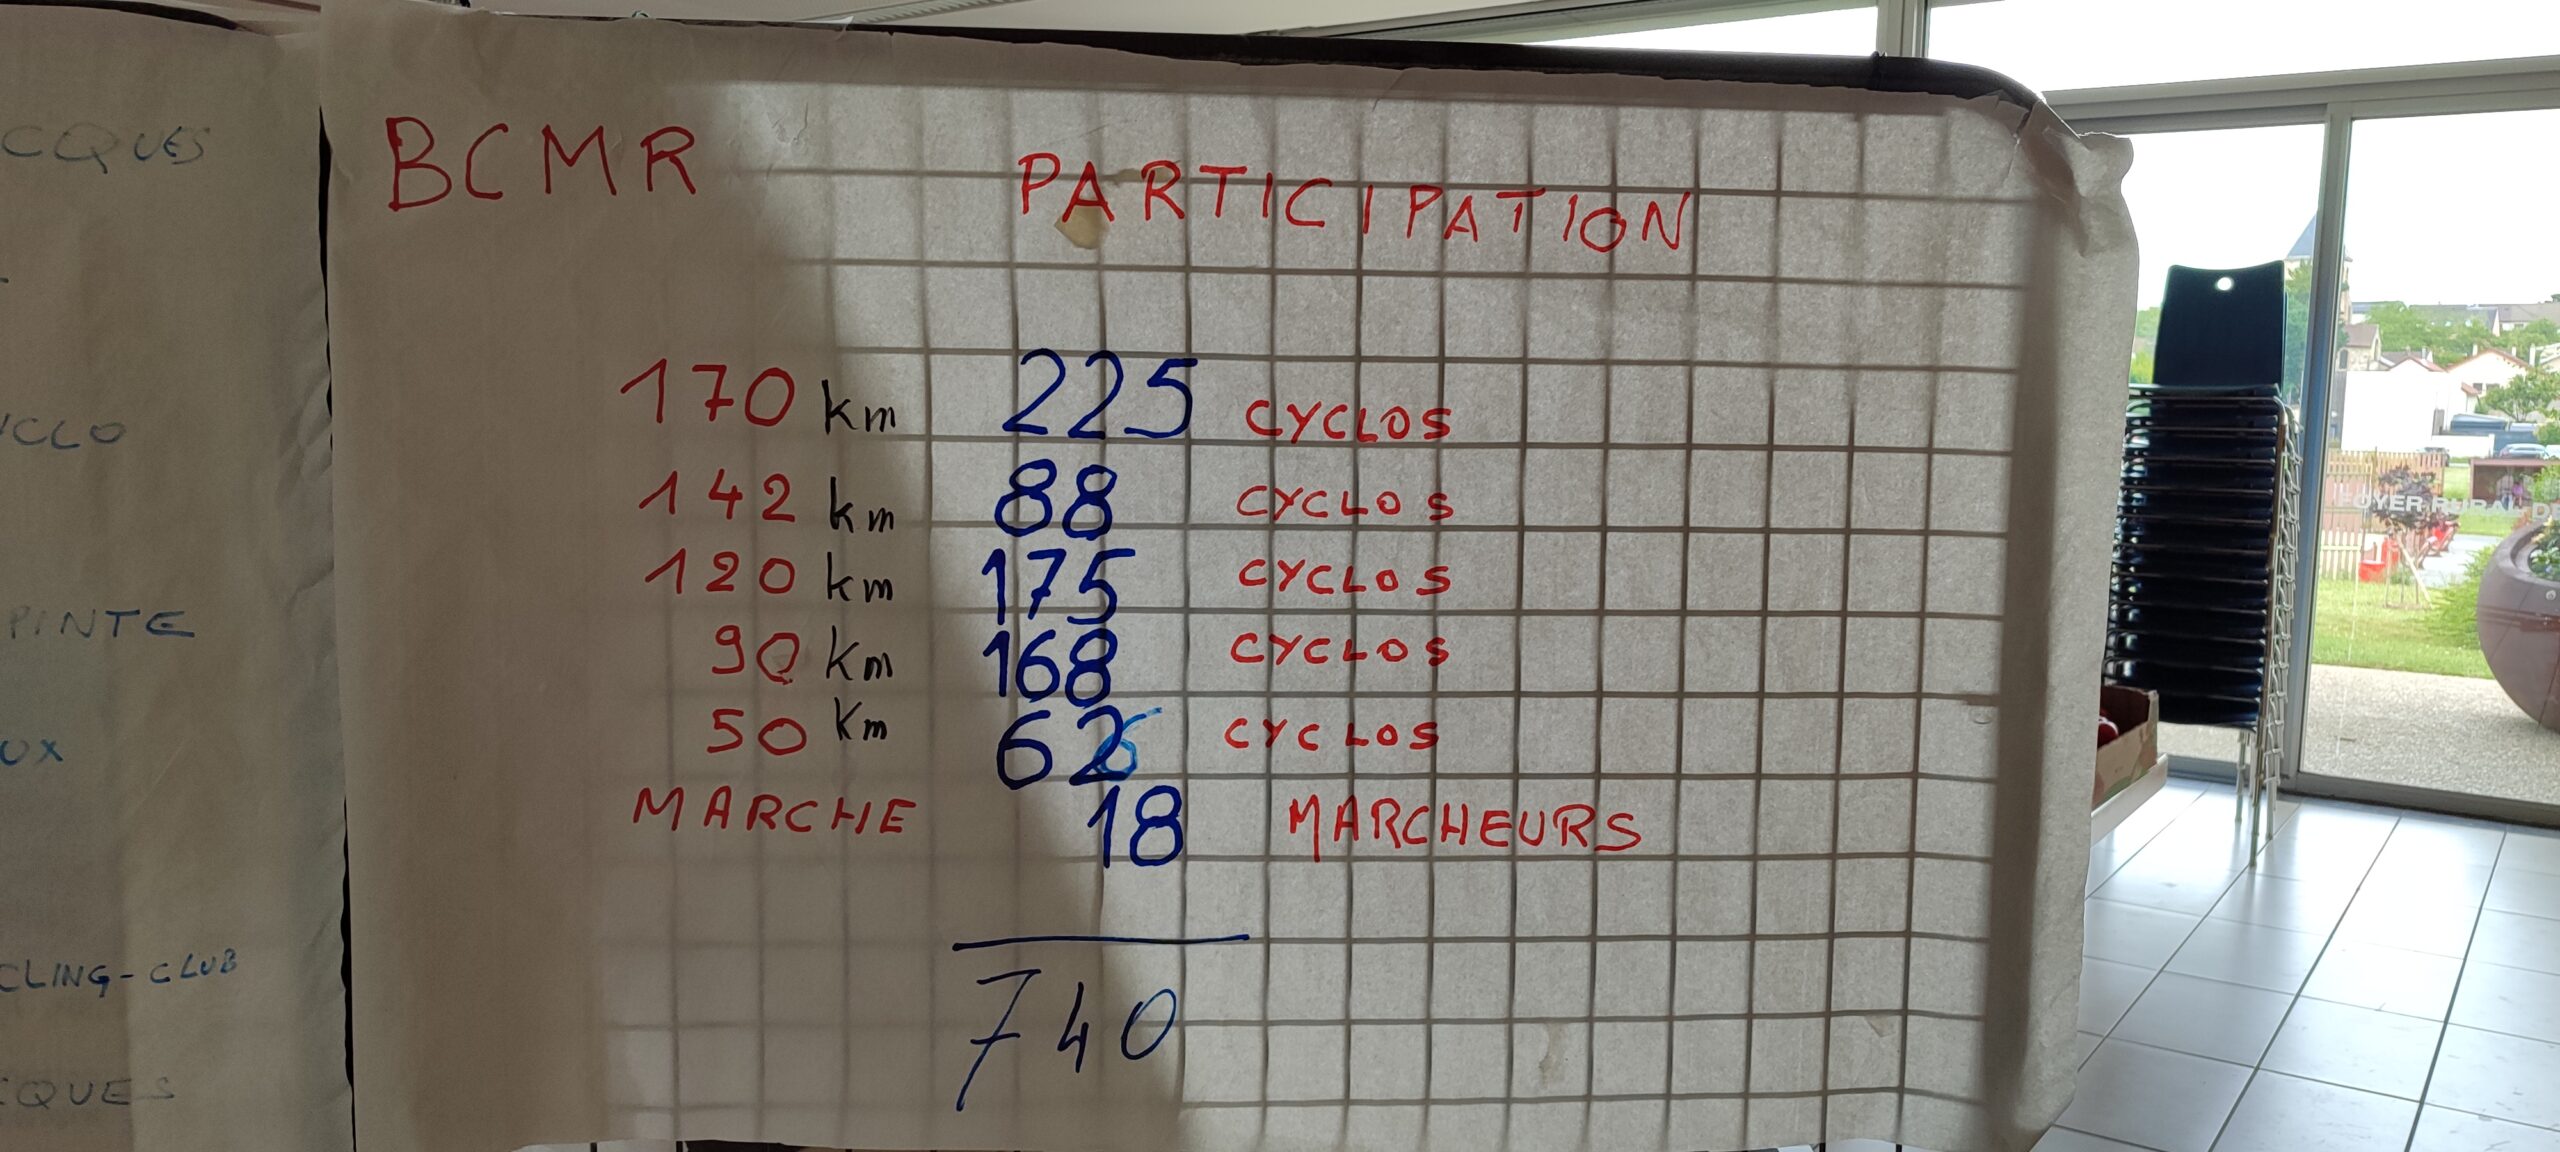 CQUES
YCLO
PINTE
UX
CLING-CLUB
CQUES
BCMR
PARTICIPATION
170 km 225 CYCLOS
142 km 88 CYCLOS
120 km 175 CYCLOS
90 km 168 CYCLOS
50 Km 66 CYCLOS
MARCHE 18 MARCHEURS
740
FOYER RURAL DE